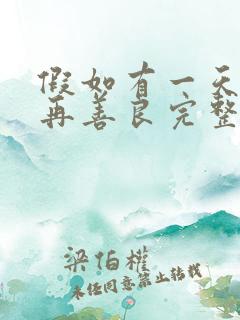 假如有一天
再善良完整
梁伯權
未经同意禁止转载